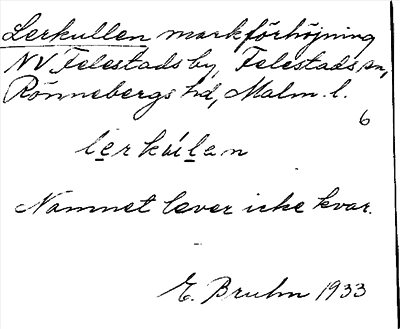 Lerkullen markförhöjning
NV Felestads by, Felestads sn,
Rönnebergs hd, Malm. l.
6
lerkúlan
Namnet lever icke kvar.
E. Bruhn 1933